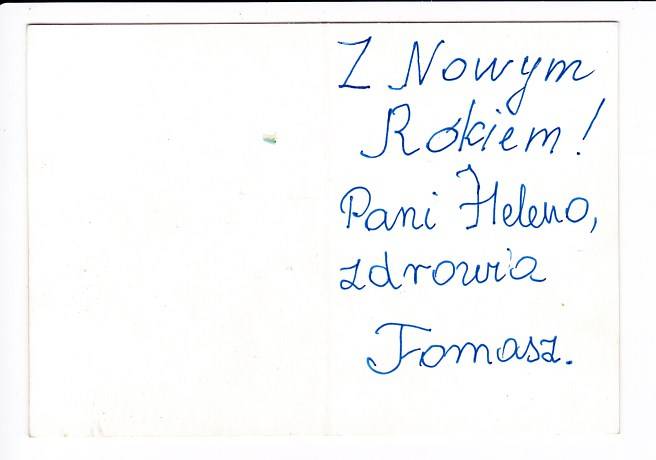 Z Nowym
Rokiem!
Pani Heleno,
zdrowia
Tomasz.